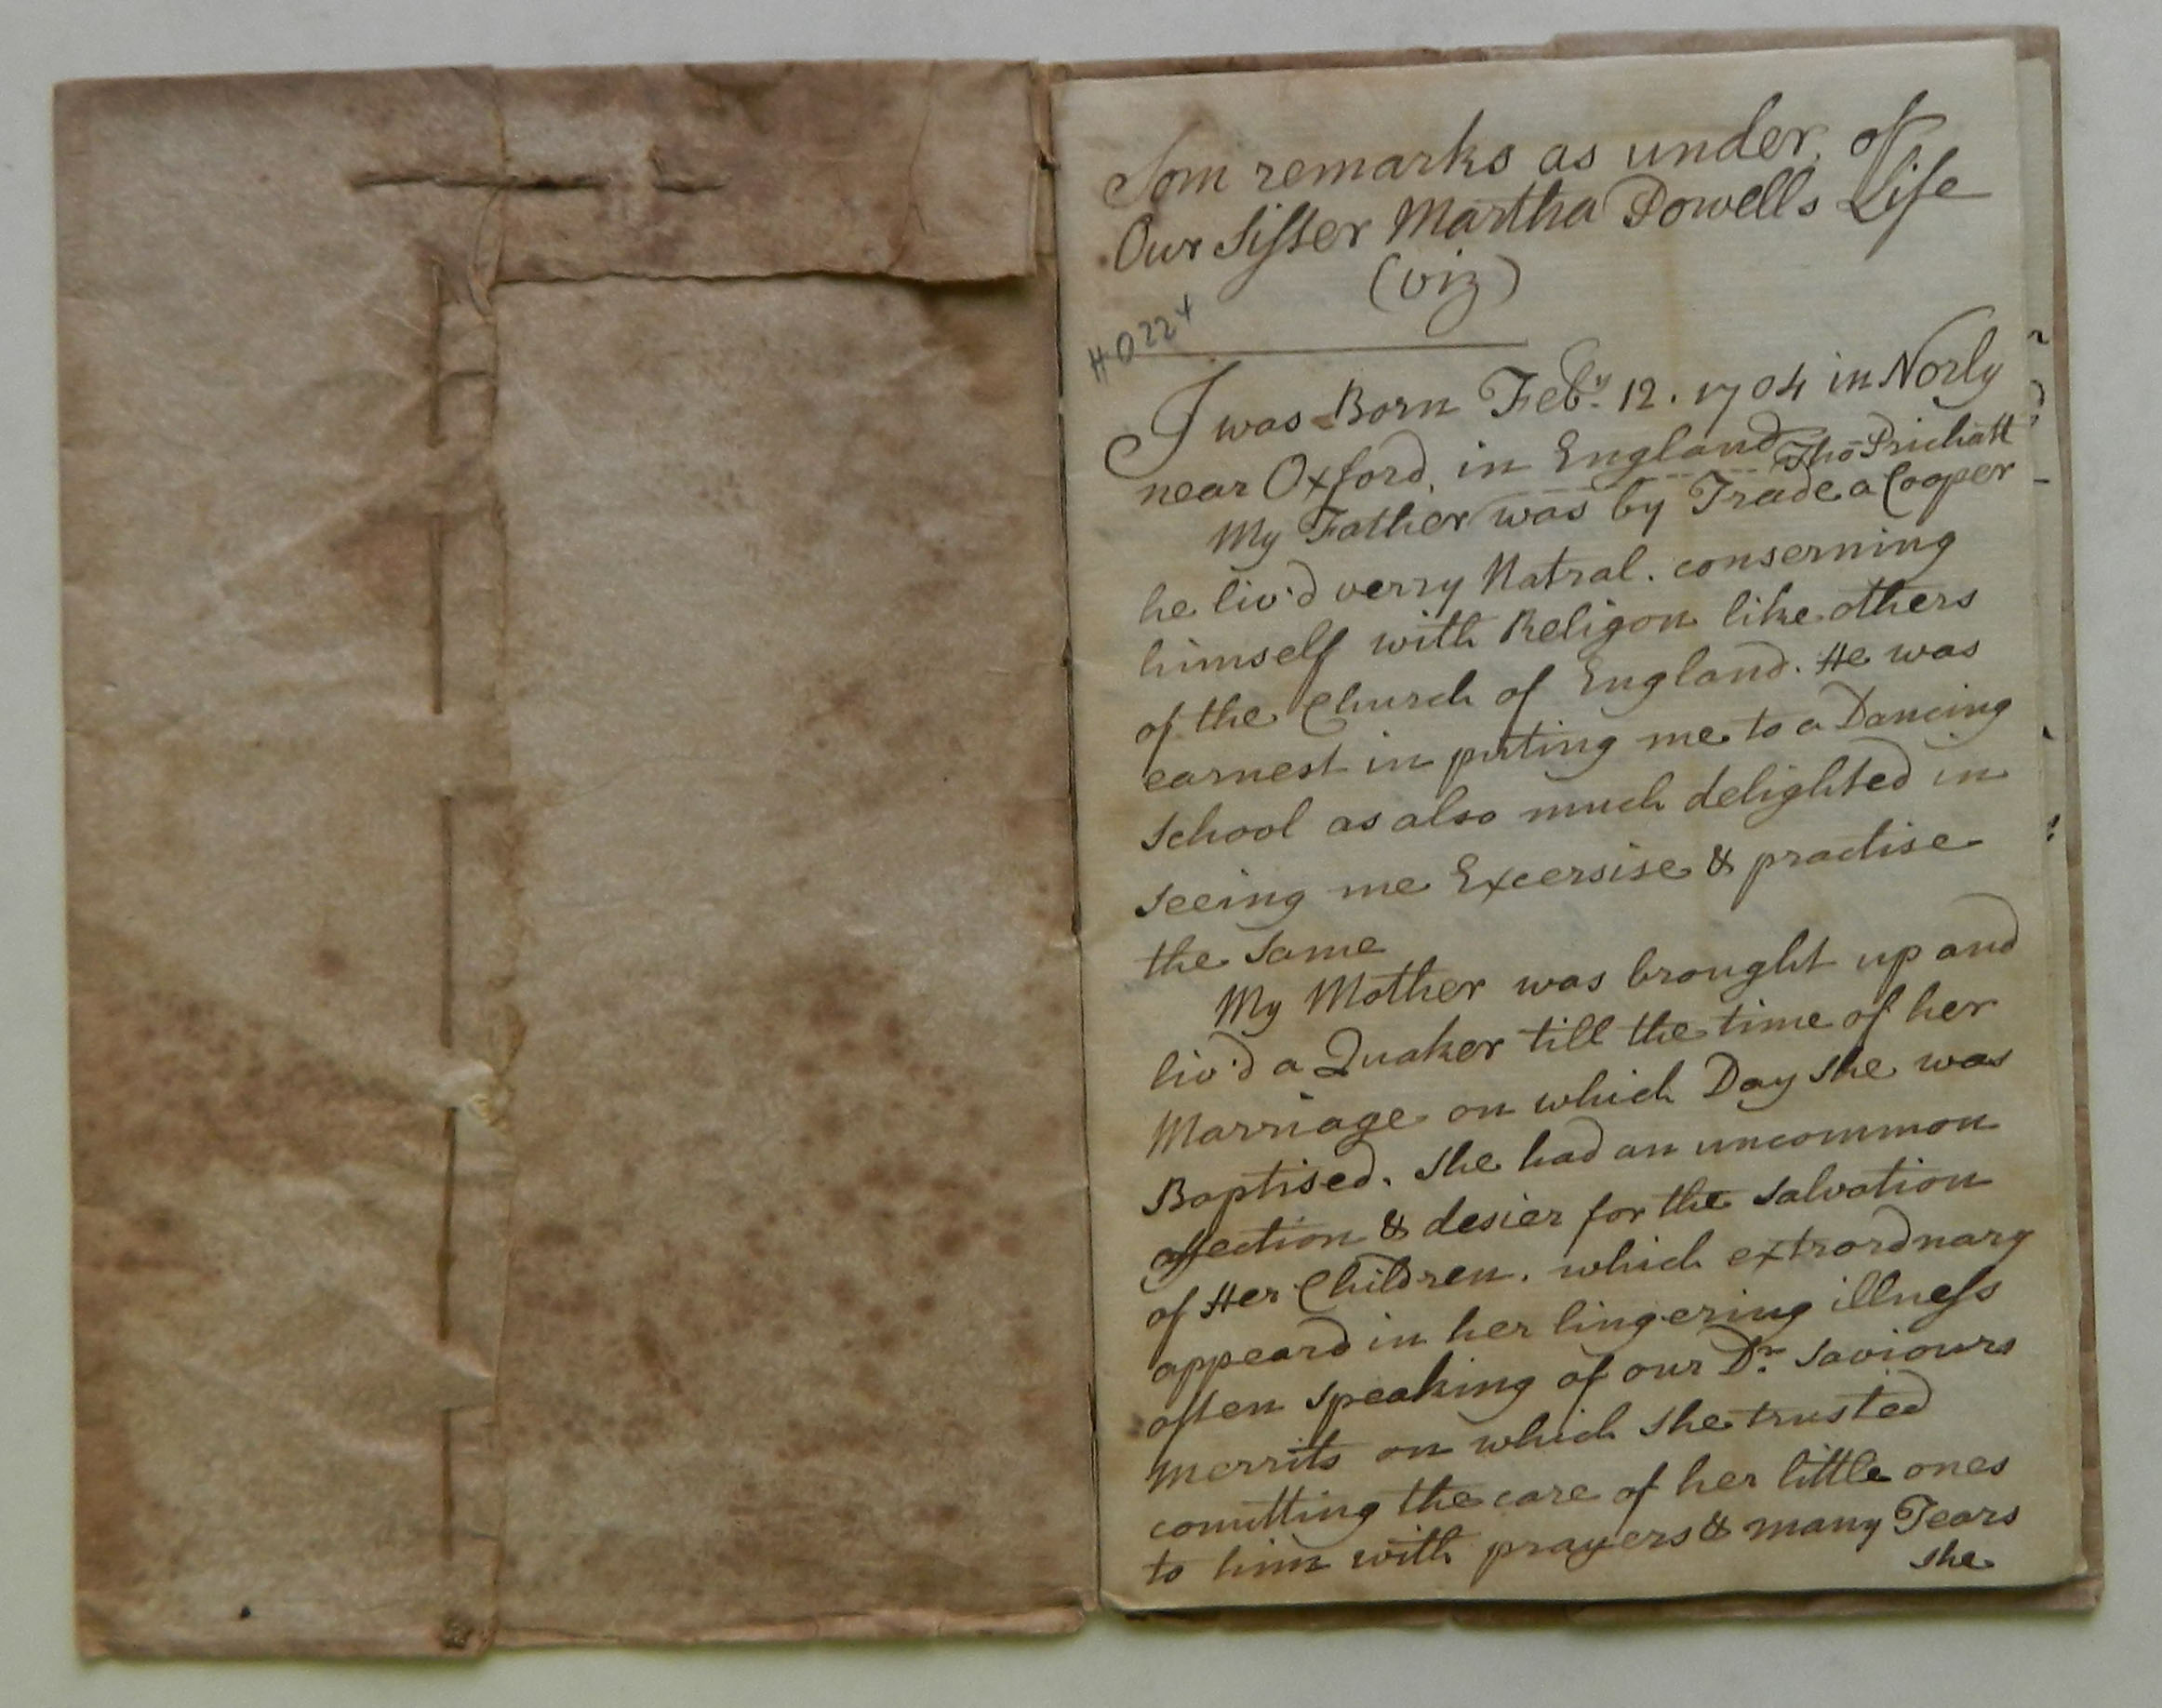 Som remarks as under, of
Our Sister Martha Powells Life
(viz)
H 022 +
I was Born Feb.y 12. 1704 in Norly
near Oxford, in England Tho Prichatt
My Father was by Trade a Cooper
he liv'd verry Natral. conserning
himself with Religon like others
of the Church of England. He was
earnest in puting me to a Dancing
School as also much delighted in
seeing me Excersise & practise
the same
My Mother was brought up and
liv'd a Quaker till the time of her
Marriage on which Day she was
Baptised. She had an uncommon
affection & desier for the salvation
of Her Children. which extrordnary
appeard in her lingering illness
often speaking of our Dr. Saviours
Merrits on which she trusted
comitting the care of her little ones
to him with prayers & many Tears
she